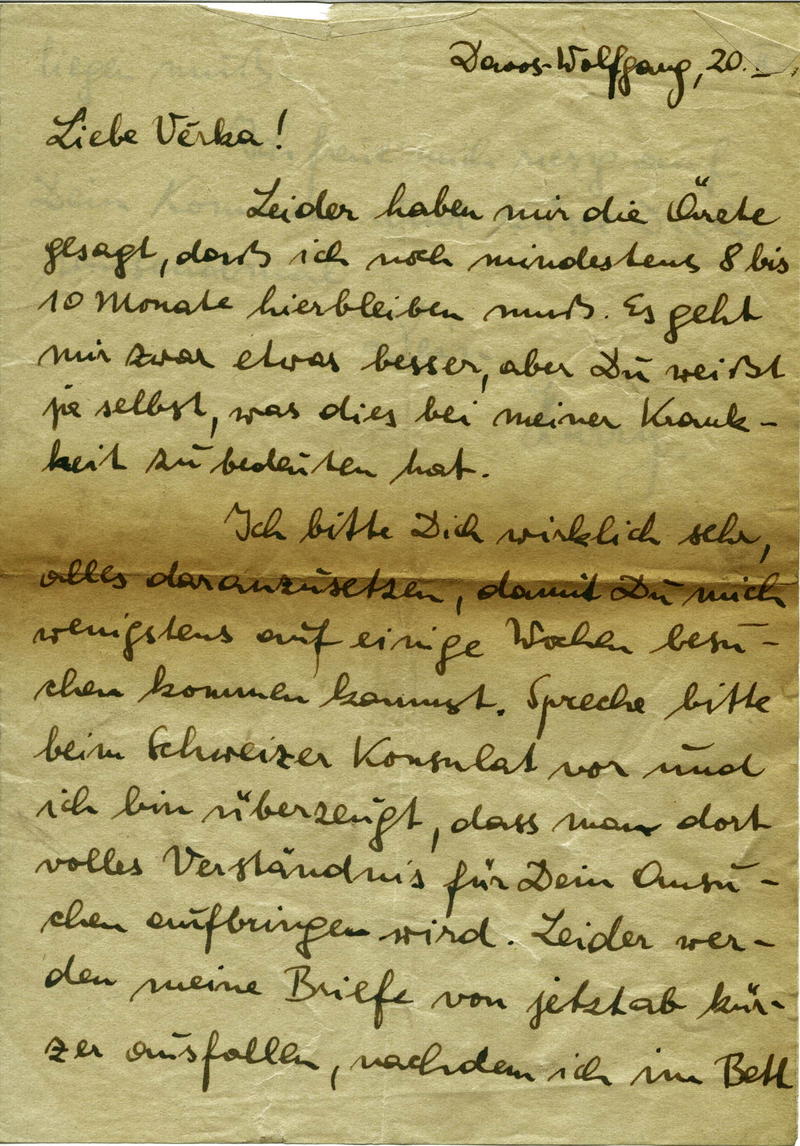 Davos-Wolfgang, 20.
Liebe Věrka!
Leider haben mir die Ärzte
gesagt, daß ich noch mindestens 8 bis
10 Monate hierbleiben muß. Es geht
mir zwar etwas besser, aber Du weißt
ja selbst, was dies bei meiner Krank-
heit zu bedeuten hat.
Ich bitte Dich wirklich sehr,
alles daranzusetzen, damit Du mich
wenigstens auf einige Wochen besu-
chen kommen kannst. Spreche bitte
beim Schweizer Konsulat vor und
ich bin überzeugt, dass man dort
volles Verständnis für Dein Ansu-
chen aufbringen wird. Leider wer-
den meine Briefe von jetzt ab kür-
zer ausfallen, nachdem ich im Bett